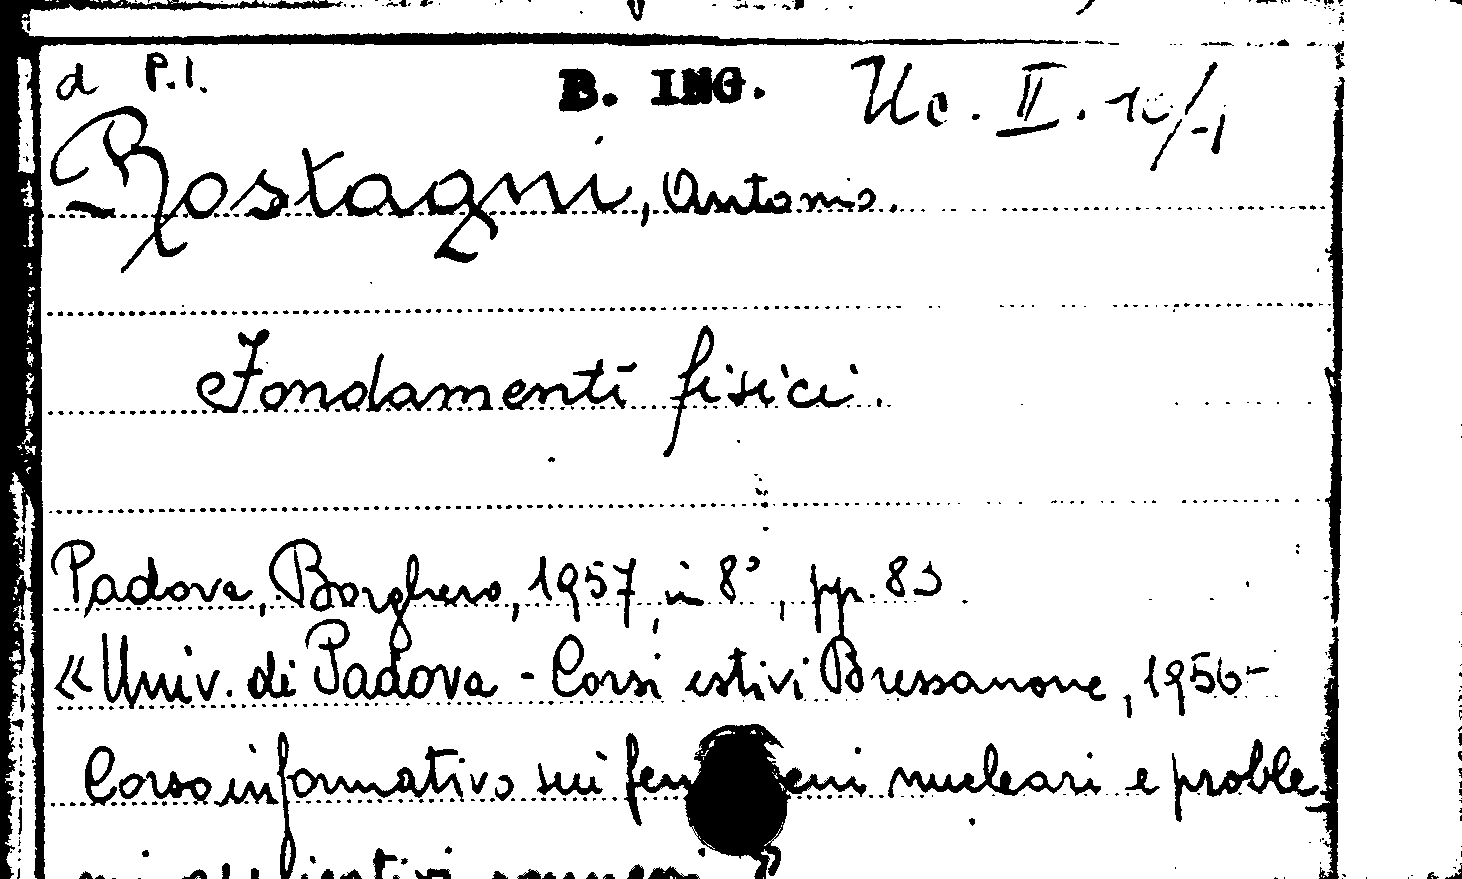 d P.I. B. ING. Uc. II. 10/1
Rostagni, Antonio.
Fondamenti fisici.
Padova, Borghero, 1957, in 8°, pp. 83
«Univ. di Padova - Corsi estivi Bressanone, 1956-
Corso informativo sui fen eni nucleari e proble_
mi applicativi connessi»